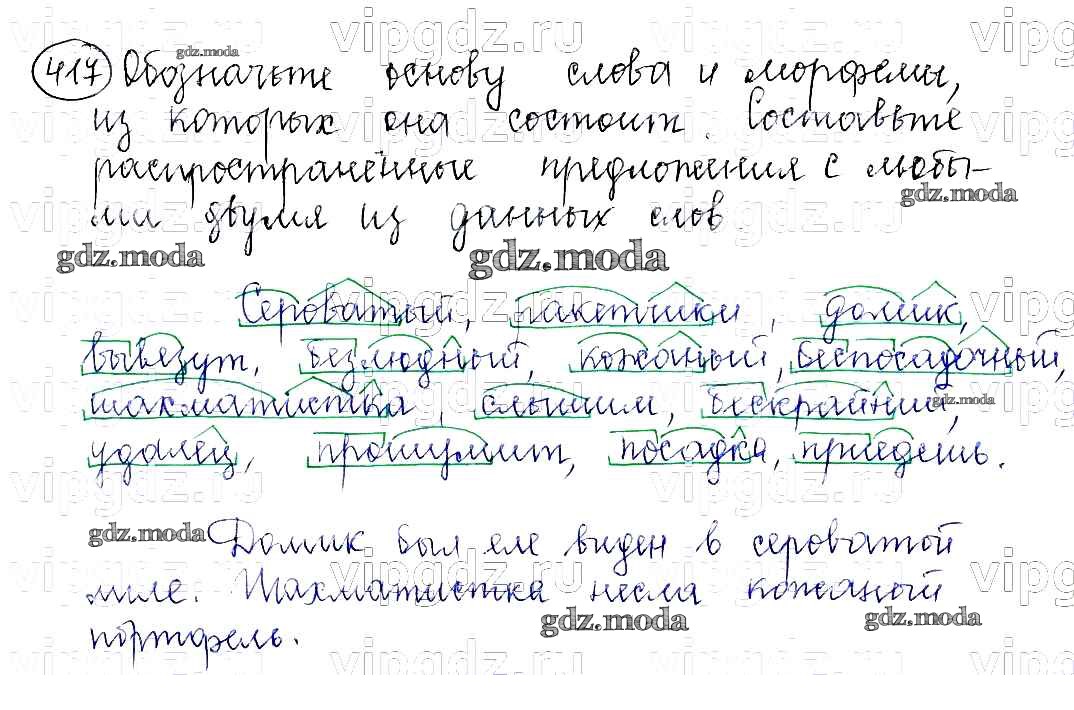 417 Обозначьте основу слова и морфемы,
из которых она состоит. Составьте
распространённые предложения с любы-
ми двумя из данных слов
Сероватый, ракетчики, домик,
вывезут, безлюдный, кожаный, беспосадочный,
шахматистка, слышим, бескрайний,
удалец, прошумит, посадка, приедешь.
Домик был еле виден в сероватой
мгле. Шахматистка несла кожаный
портфель.
gdz.moda
vipgdz.ru